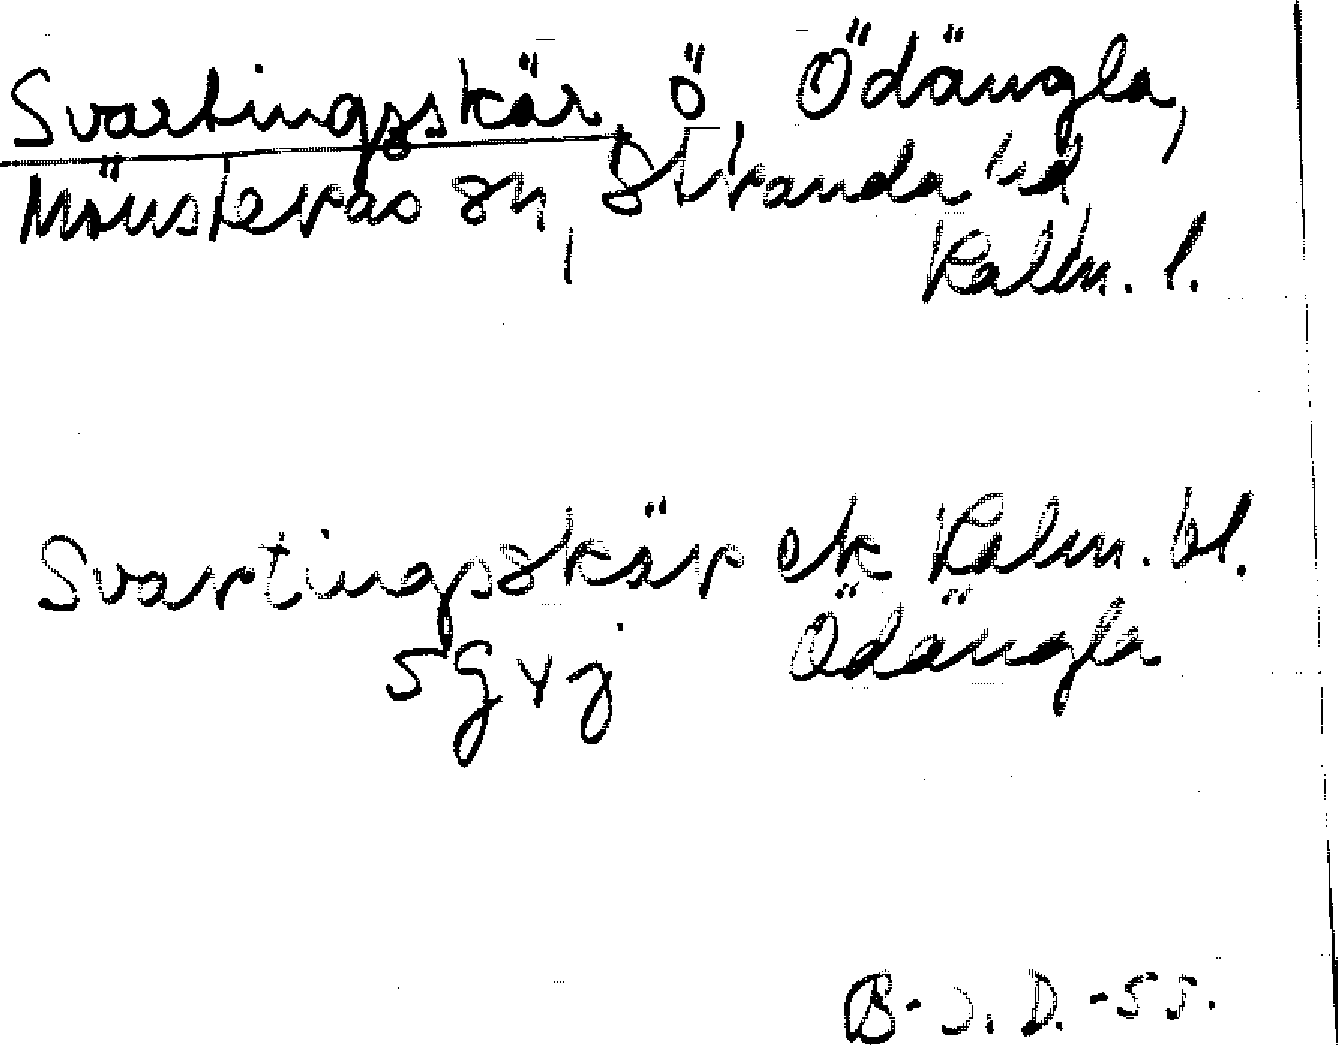 Svartingsskär, ö, Ödängla,
Mönsterås sn, Stranda hd
Kalm. l.
Svartingsskär ek Kalm. bl.
5gvj Ödängla
B-J. D. -55.